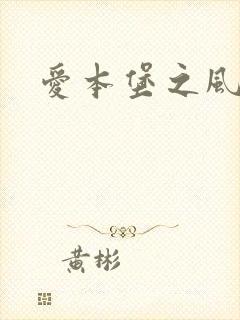 愛本堡之風
黃彬